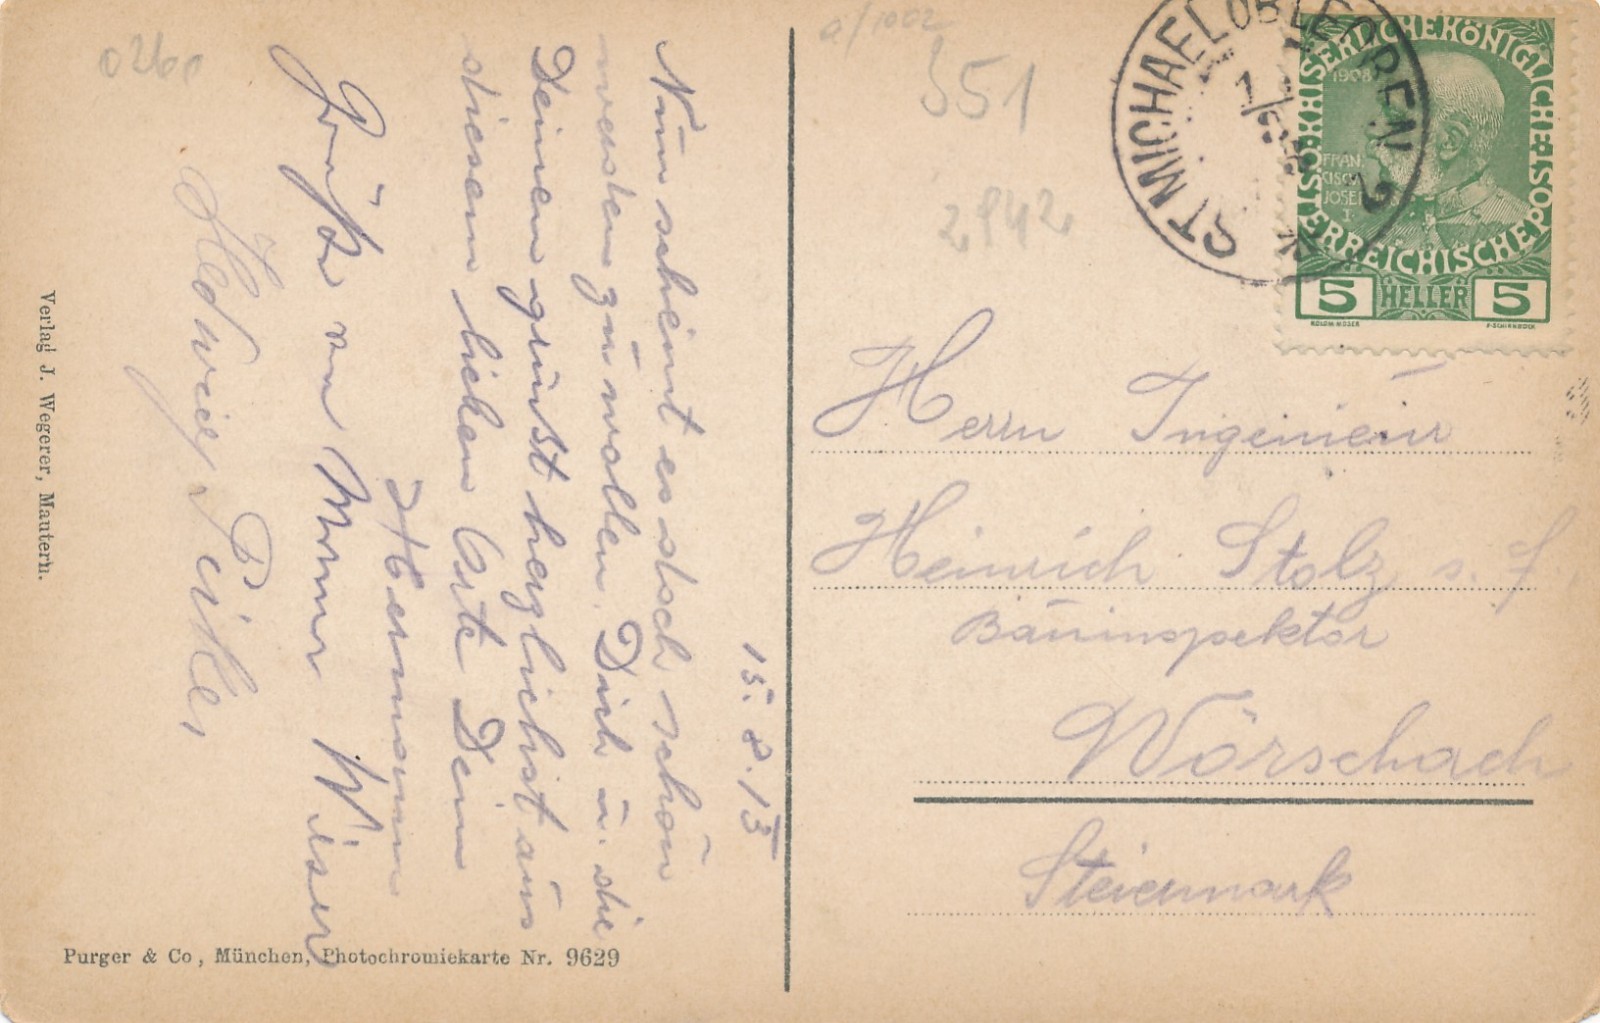 15. 8. 13
Nun scheint es doch schön
werden zu wollen. Dich u. die
Deinen grüßt herzlichst aus
diesem lieben Orte Dein
Hermann
Grüße von
Hedwig
Verlag J. Wegerer, Mautern.
Purger & Co., München, Photochromiekarte Nr. 9629
0260
a/1002
351
2942
ST MICHAEL OB LEOBEN
KAISERLICHE KÖNIGLICHE ÖSTERREICHISCHE POST
1908
FRAN
CISCVS
JOSEF
I.
5 HELLER 5
KOLOM. MOSER
F. SCHIRNBÖCK
Herrn Ingenieur
Heinrich Stolz s. f.
Bauinspektor
Wörschach
Steiermark